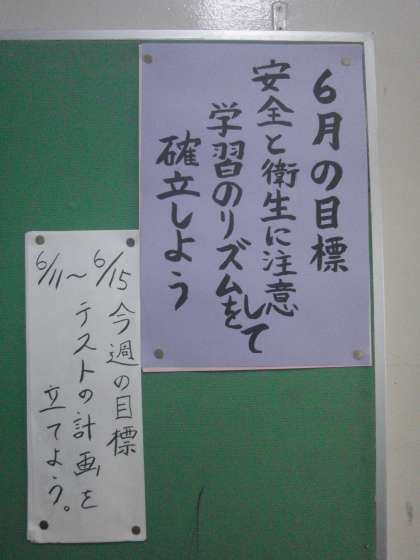 6月の目標
安全と衛生に注意して
学習のリズムを
確立しよう
6/11～6/15
今週の目標
テストの計画を
立てよう。